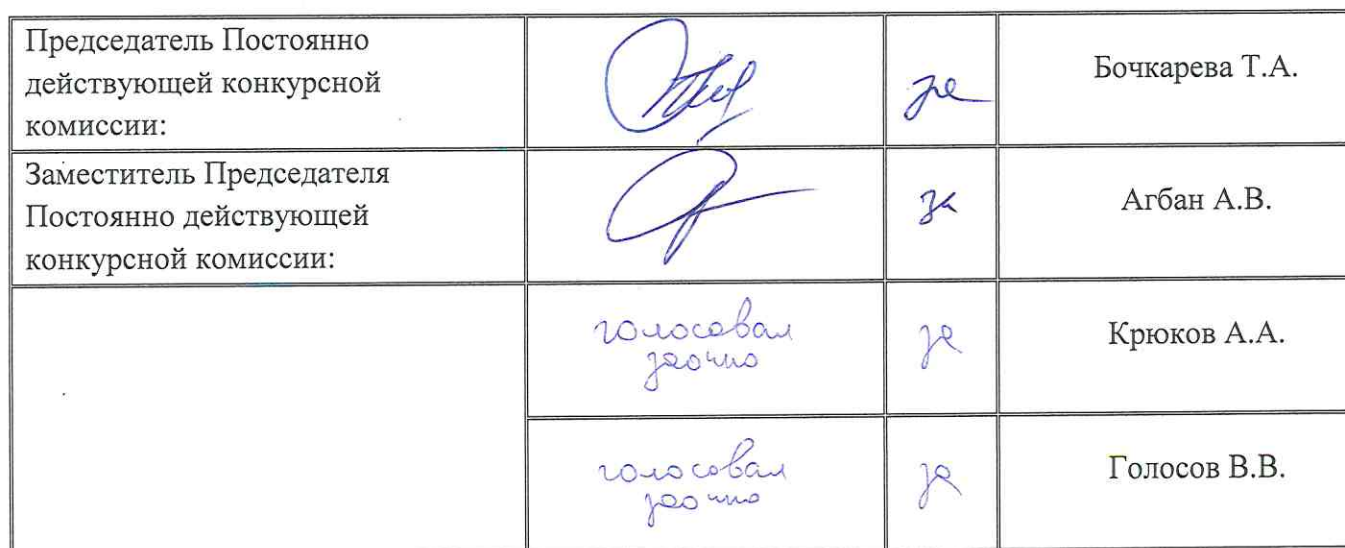 Председатель Постоянно
действующей конкурсной
комиссии:
за
Бочкарева Т.А.
Заместитель Председателя
Постоянно действующей
конкурсной комиссии:
за
Агбан А.В.
голосовал
заочно
за
Крюков А.А.
голосовал
заочно
за
Голосов В.В.